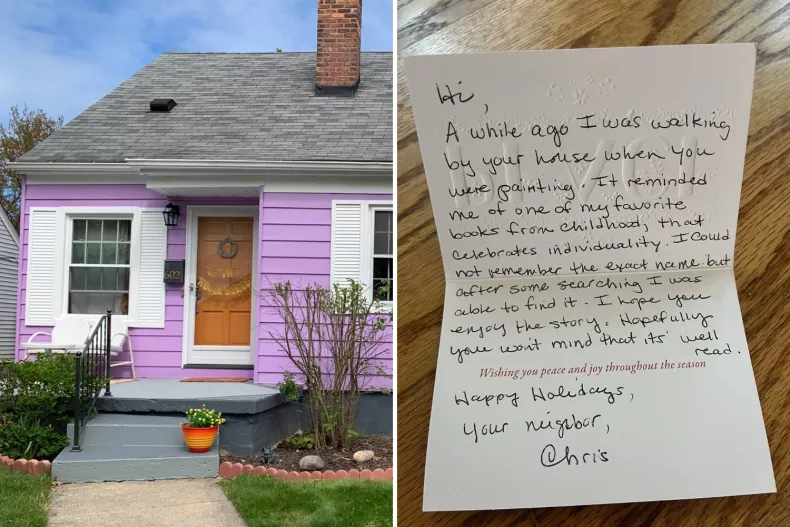 502
Hi,
A while ago I was walking
by your house when you
were painting. It reminded
me of one of my favorite
books from childhood, that
celebrates individuality. I could
not remember the exact name but
after some searching I was
able to find it. I hope you
enjoy the story. Hopefully
you won't mind that its well
read.
Wishing you peace and joy throughout the season
Happy Holidays,
your neighbor,
Chris